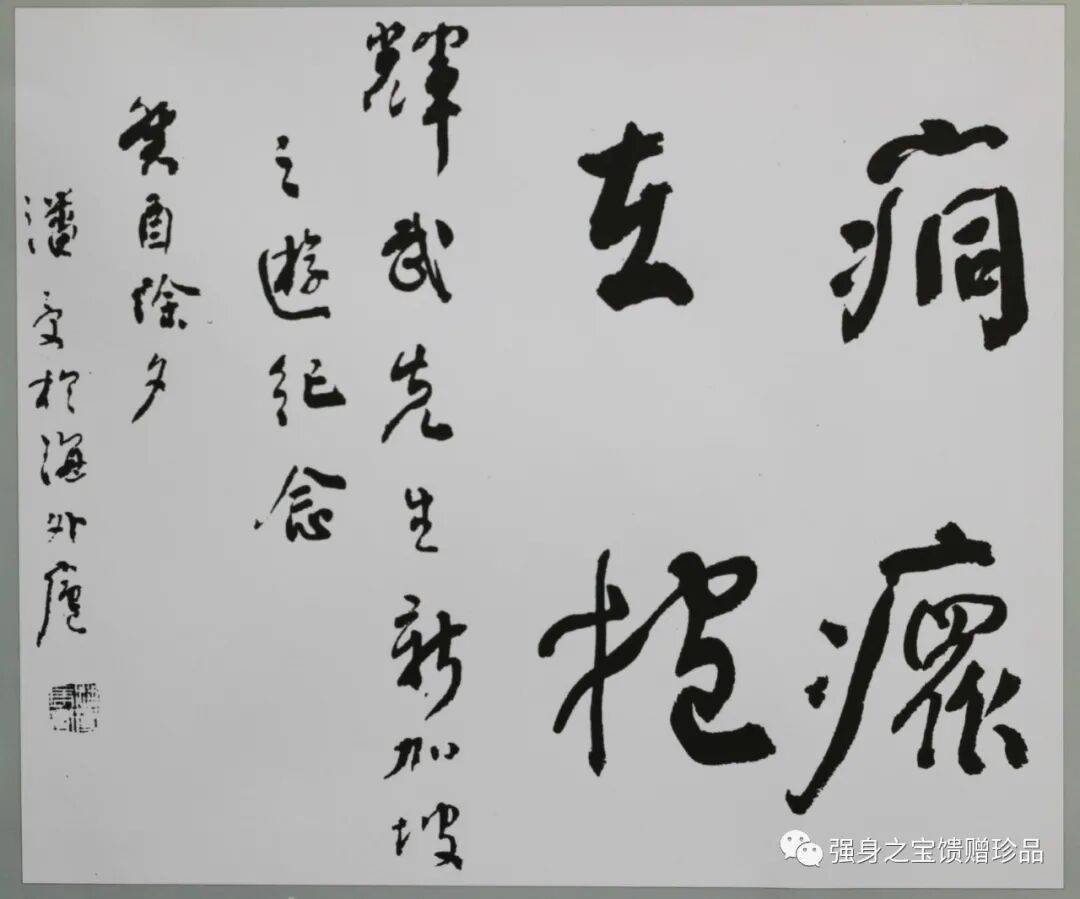 痌瘝
在抱
輝武先生新加坡
之遊紀念
癸酉除夕
潘受於海外廬
强身之宝馈赠珍品